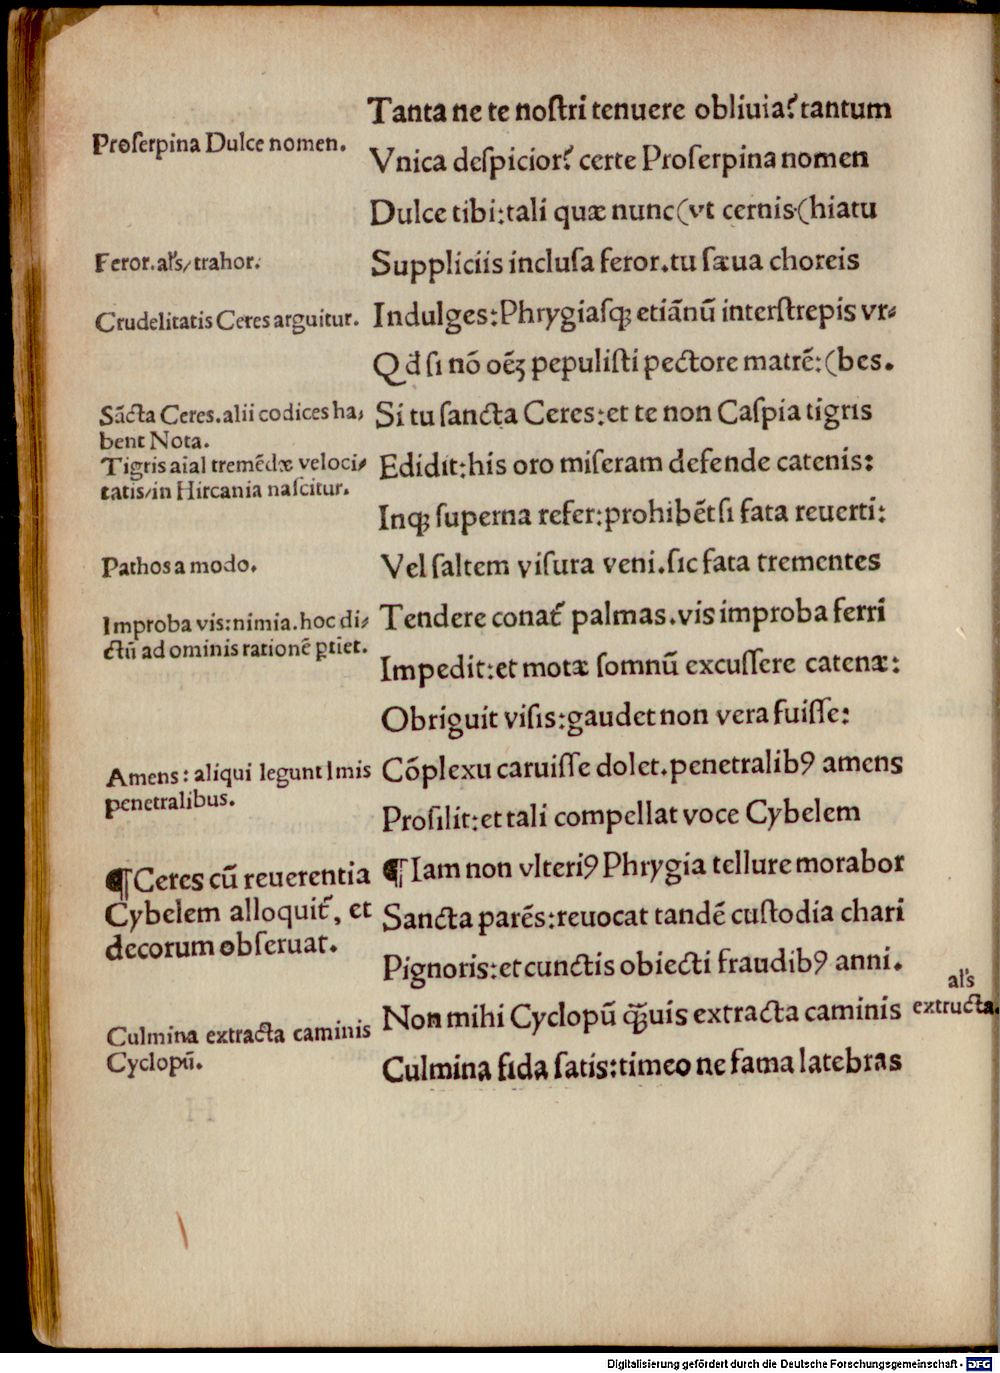 Tanta ne te noſtri tenuere obliuia? tantum
Vnica deſpicior? certe Proſerpina nomen
Dulce tibi: tali quæ nunc (vt cernis (hiatu
Suppliciis incluſa feror. tu ſæua choreis
Indulges: Phrygiaſqꝫ etiā nū interſtrepis vr⸗
Qđ ſi nō oēꝫ pepuliſti pectore matrē: (bes.
Si tu ſancta Ceres: et te non Caſpia tigris
Edidit: his oro miſeram defende catenis:
Inqꝫ ſuperna refer: prohibēt ſi fata reuerti:
Vel ſaltem viſura veni. ſic fata trementes
Tendere conat᷑ palmas. vis improba ferri
Impedit: et motæ ſomnū excuſſere catenæ:
Obriguit viſis: gaudet non vera fuiſſe:
Cōplexu caruiſſe dolet. penetralibꝰ amens
Proſilit: et tali compellat voce Cybelem
¶ Iam non vlteriꝰ Phrygia tellure morabor
Sancta parēs: reuocat tandē cuſtodia chari
Pignoris: et cunctis obiecti fraudibꝰ anni.
Non mihi Cyclopū q̄uis extracta caminis
Culmina fida ſatis: timeo ne fama latebras
Proſerpina Dulce nomen.
Feror. al's/ trahor.
Crudelitatis Ceres arguitur.
Sācta Ceres. alii codices ha⸗
bent Nota.
Tigris aīal tremēdæ veloci⸗
tatis/ in Hircania naſcitur.
Pathos a modo.
Improba vis: nimia. hoc di⸗
ctū ad ominis rationē ꝑtiet.
Amens: aliqui legunt Imis
penetralibus.
¶ Ceres cū reuerentia
Cybelem alloquit᷑, et
decorum obſeruat.
Culmina extracta caminis
Cyclopū.
al's
extructa.
Digitalisierung gefördert durch die Deutsche Forschungsgemeinschaft - DFG